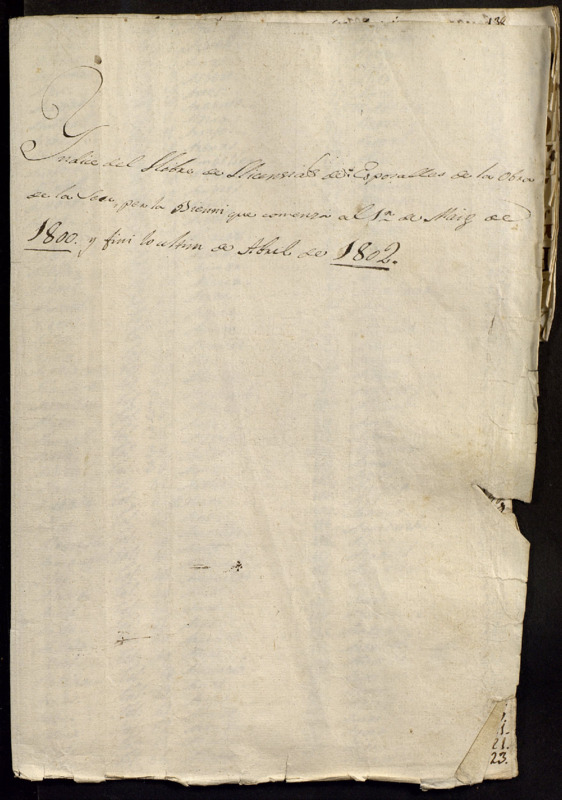 138
Yndice del Llibre de Llicencias de Esposalles de la Obra
de la Seu, per lo Bienni que comensá al 1.er de Maig de
1800. y finí lo ultim de Abril de 1802.
1.
21.
23.